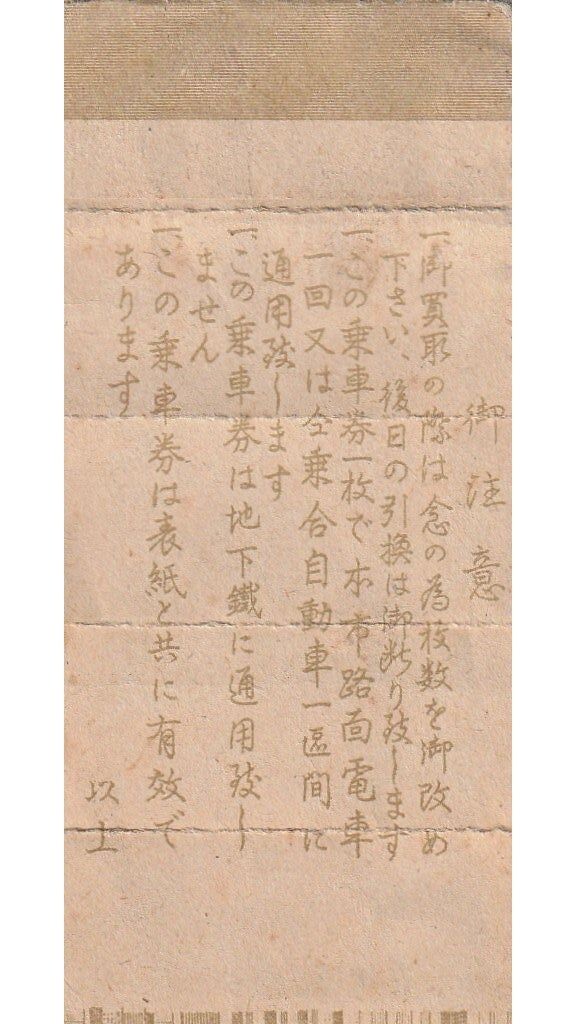 御注意
一、御買取の際は念の為枚数を御改め
下さい、後日の引換は御断り致します
一、この乗車券一枚で本市路面電車
一回又は仝乗合自動車一區間に
通用致します
一、この乗車券は地下鐵に通用致し
ません
一、この乗車券は表紙と共に有效で
あります
以上